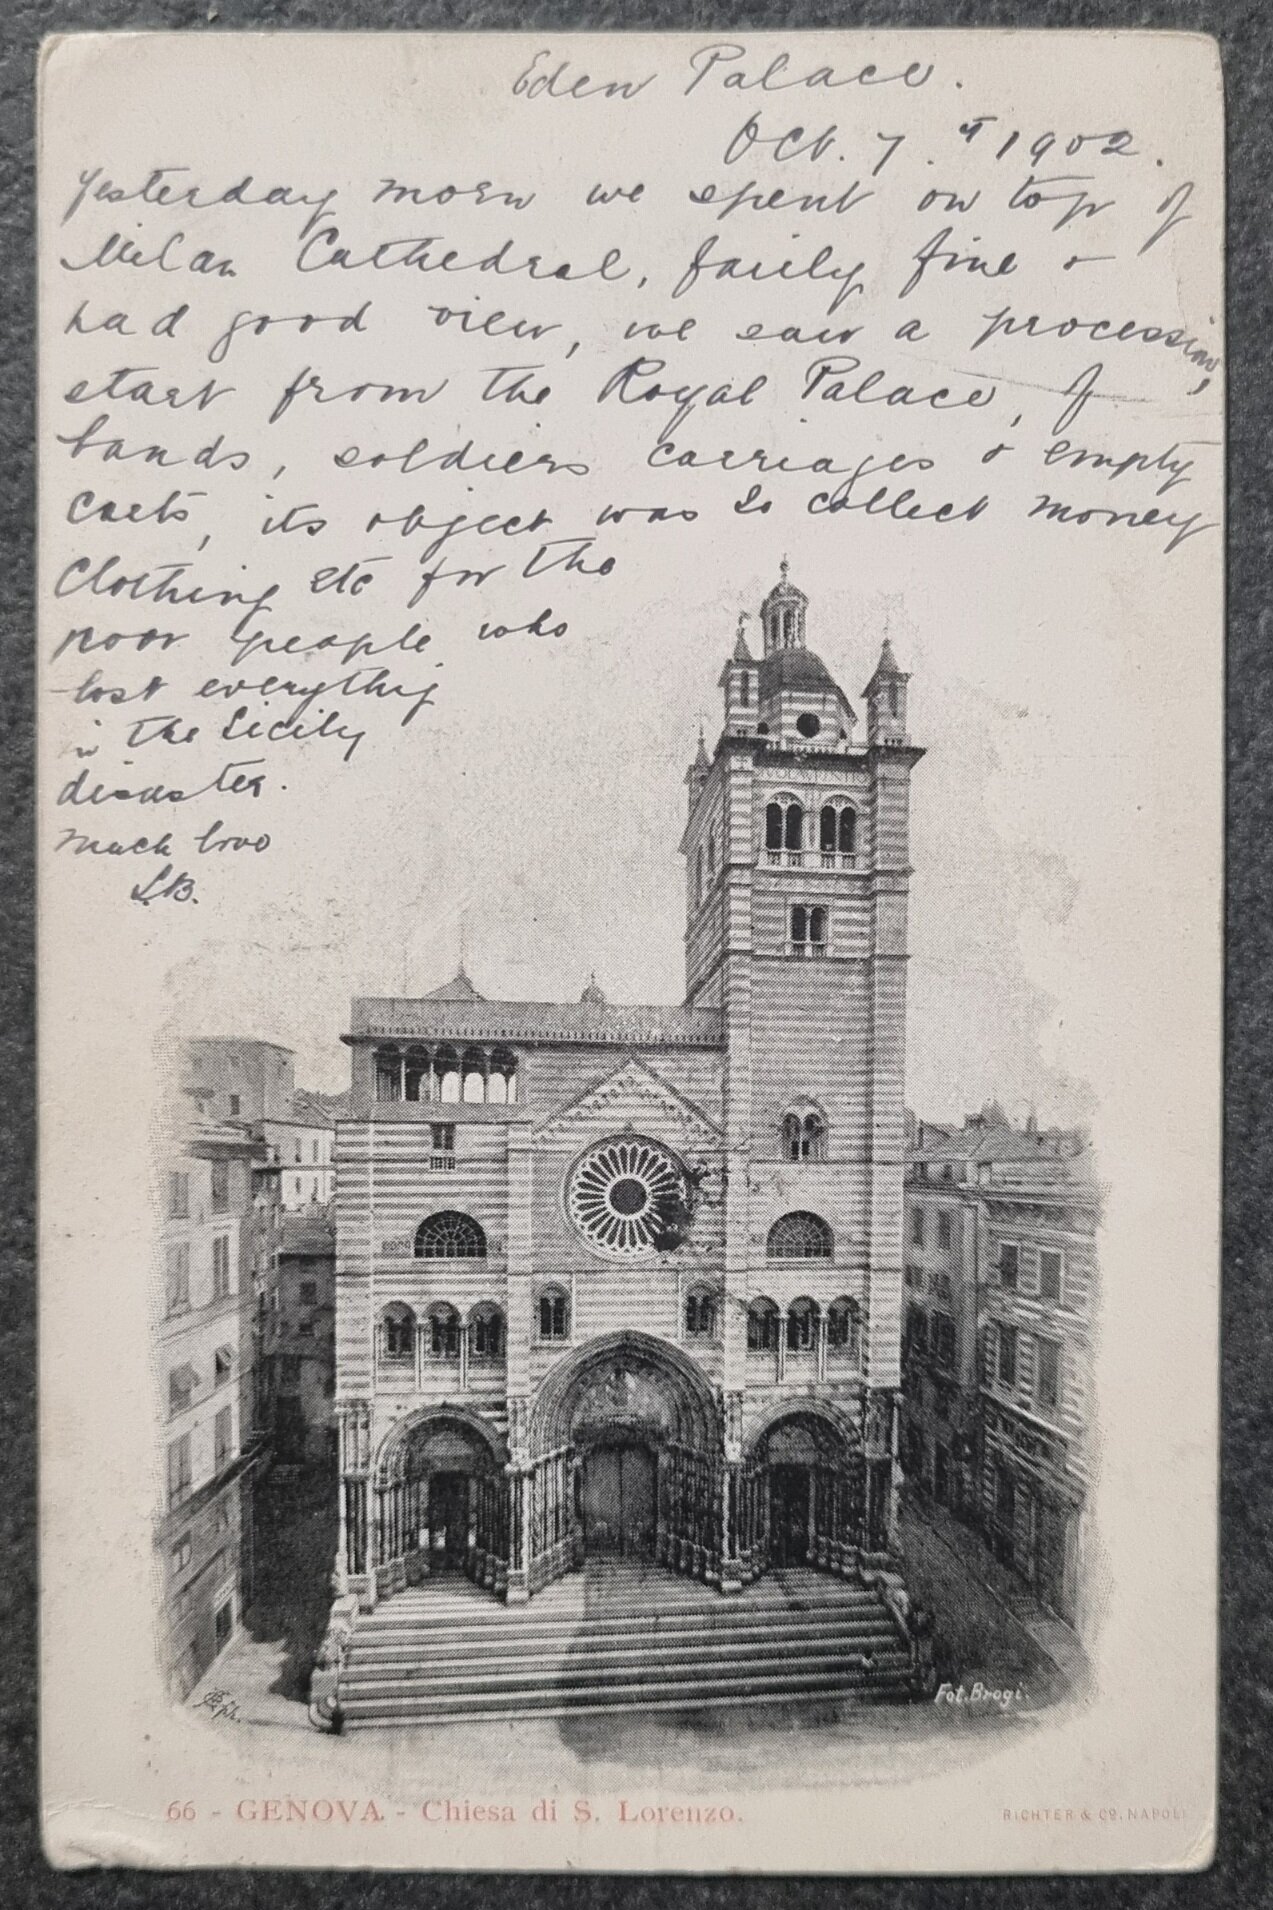 Eden Palace.
Oct. 7. 1902.
Yesterday morn we spent on top of
Milan Cathedral, fairly fine &
had good view, we saw a procession,
start from the Royal Palace, of
bands, soldiers carriages & empty
carts, its object was to collect money
Clothing etc for the
poor people who
lost everything
in the Sicily
disaster.
Much love
L.B.
Fot. Brogi.
66 - GENOVA - Chiesa di S. Lorenzo.
RICHTER & Cº. NAPOLI